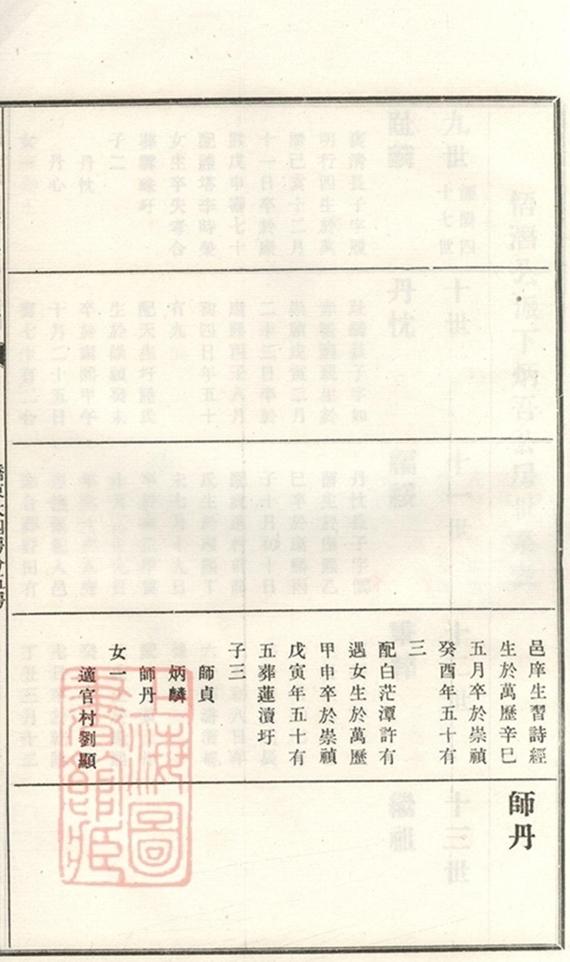 邑庠生習詩經
生於萬歷辛巳
五月卒於崇禎
癸酉年五十有
三
配白茫潭許有
遇女生於萬歷
甲申卒於崇禎
戊寅年五十有
五葬蓮瀆圩
子三
師貞
炳麟
師丹
女一
適官村劉顯
師丹
上海圖
書館藏